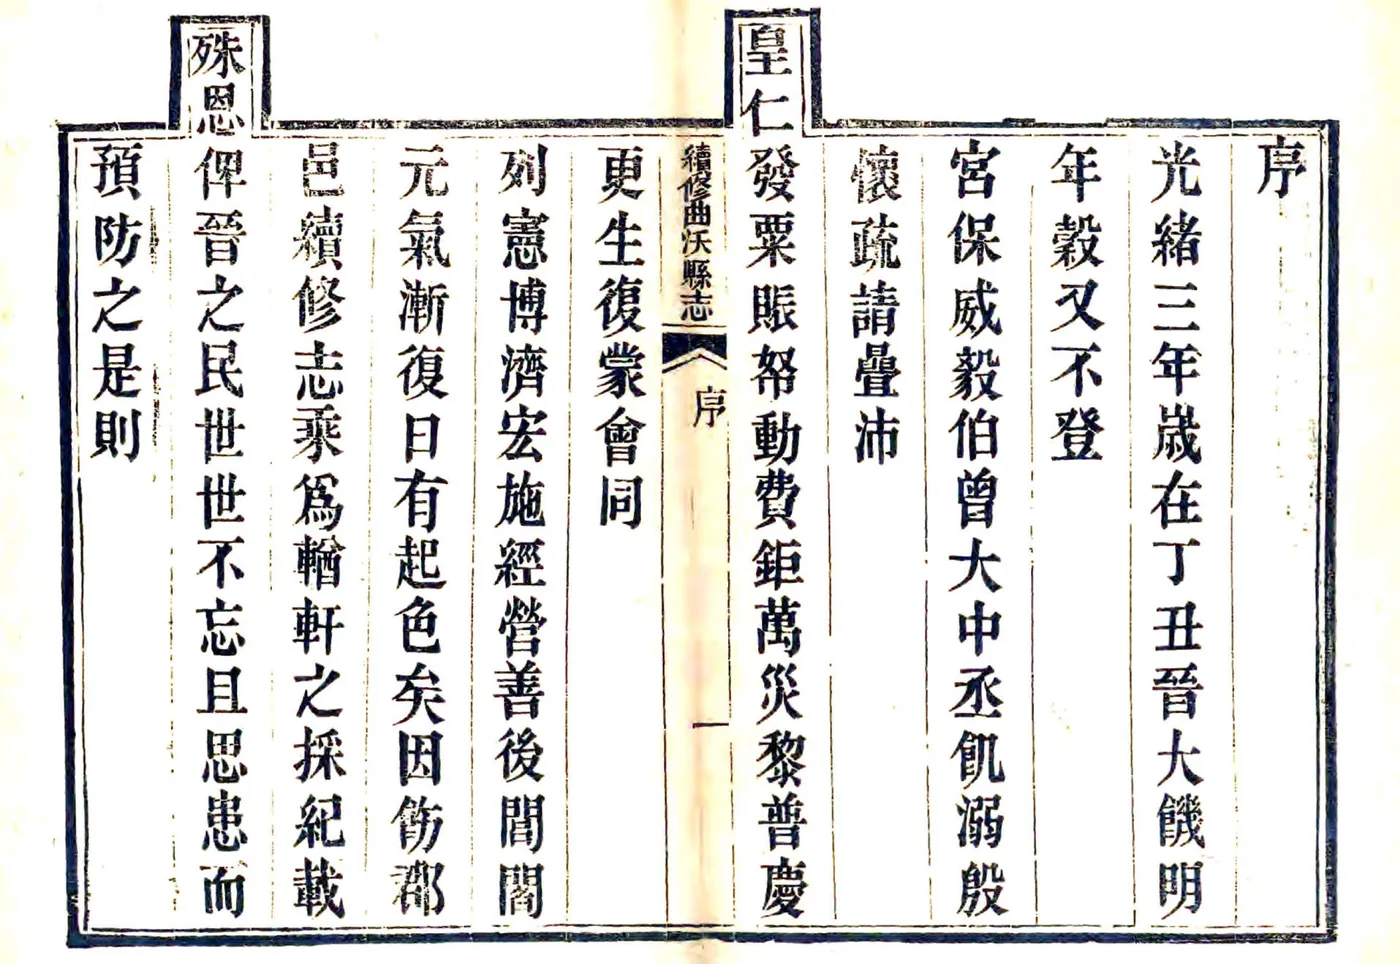 序
光緒三年歲在丁丑晉大饑明
年穀又不登
宮保威毅伯曾大中丞飢溺殷
懷疏請疊沛
皇仁發粟賑帑動費鉅萬災黎普慶
續修曲沃縣志
序
一
更生復蒙會同
列憲博濟宏施經營善後閭閻
元氣漸復日有起色矣因飭郡
邑續修志乘爲輶軒之採紀載
殊恩俾晉之民世世不忘且思患而
預防之是則